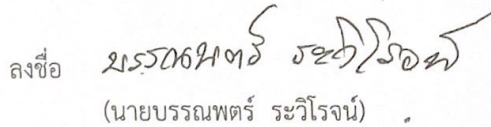 ลงชื่อ บรรณพตร์ ระวิโรจน์
(นายบรรณพตร์ ระวิโรจน์)